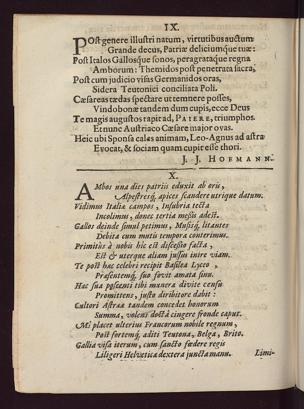 IX.
POst genere illustri natum, virtutibus auctum
Grande decus, Patriæ deliciumque tuæ:
Post Italos Gallosque sonos, peragrataque regna
Amborum: Themidos post penetrata sacra,
Post cum judicio visas Germanidos oras,
Sidera Teutonici conciliata Poli.
Cæsareas tædas spectare ut temnere posses,
Vindobonæ tandem dum cupis, ecce Deus
Te magis augustos rapit ad, PATERE, triumphos.
Et nunc Austriaco Cæsare major ovas.
Heic ubi Sponsa calas animam, Leo-Agnus ad astra
Evocat, & sociam quam cupit esse thori.
J. J. HOFMANN.
X.
AMbos una dies patriis eduxit ab oris,
Alpestresq́; apices scandere utrique datum.
Vidimus Italiæ campos, Insubria tecta
Incolimus, donec tertia messis adest.
Gallos deinde simul petimus, Musisq́; litantes
Debita cum mutis tempora conterimus.
Primitùs à nobis hic est discessio facta,
Est & uterque aliam jussus inire viam.
Te post hac celebri recipit Basilea Lyceo,
Præsentemq́; suo fovit amata sinu.
Hac sua possenti tibi munera divite censu
Promittens, justo diribitore dabat:
Cultori Astrææ tandem concedet honorum
Summa, volens doctâ cingere fronde caput.
At placet ulterius Francorum nobile regnum,
Post fortemq́; aditi Teutona, Belga, Brito.
Gallia visa iterum, cum sancto fœdere regis
Liligeri Helvetica dextera juncta manu.
Limi-